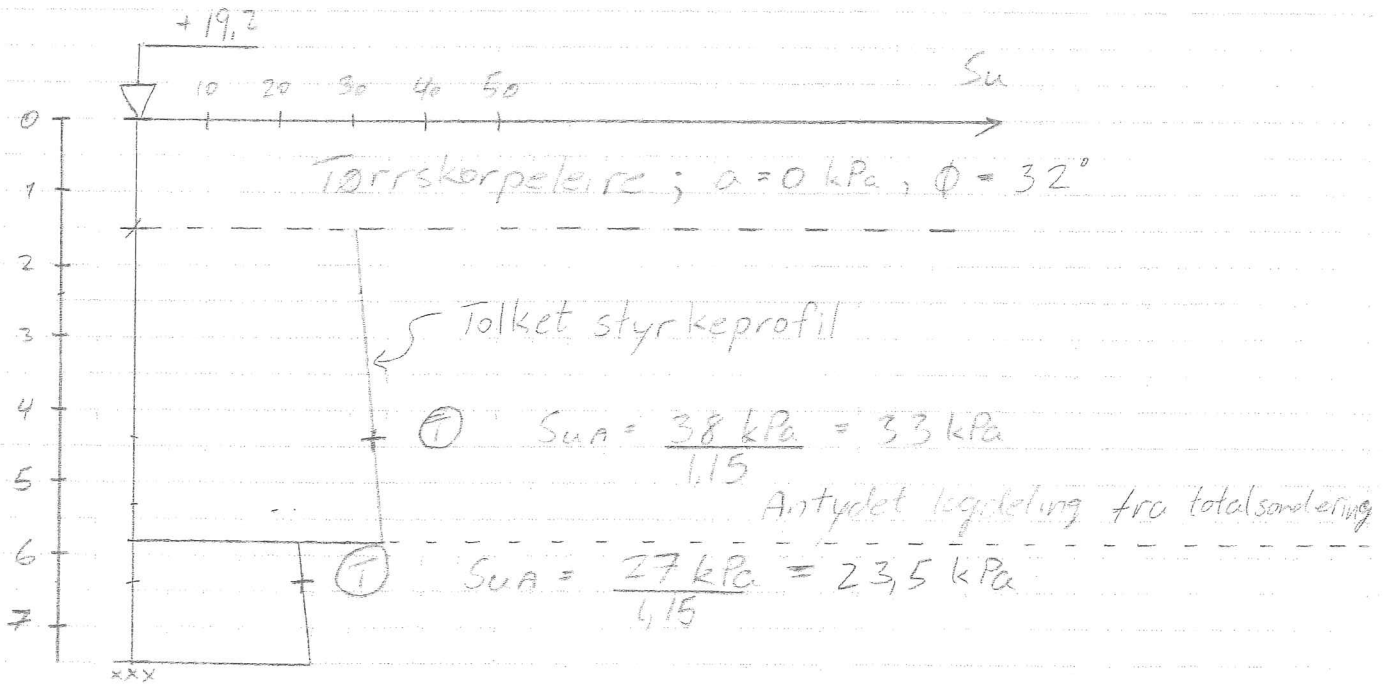 +19,2
Su
10 20 30 40 50
0
Tørrskorpeleire ; a = 0 kPa, ϕ = 32°
1
2
Tolket styrkeprofil
3
4
T SuA = 38 kPa / 1,15 = 33 kPa
5
Antydet lagdeling fra totalsondering
6
T SuA = 27 kPa / 1,15 = 23,5 kPa
7
xxx